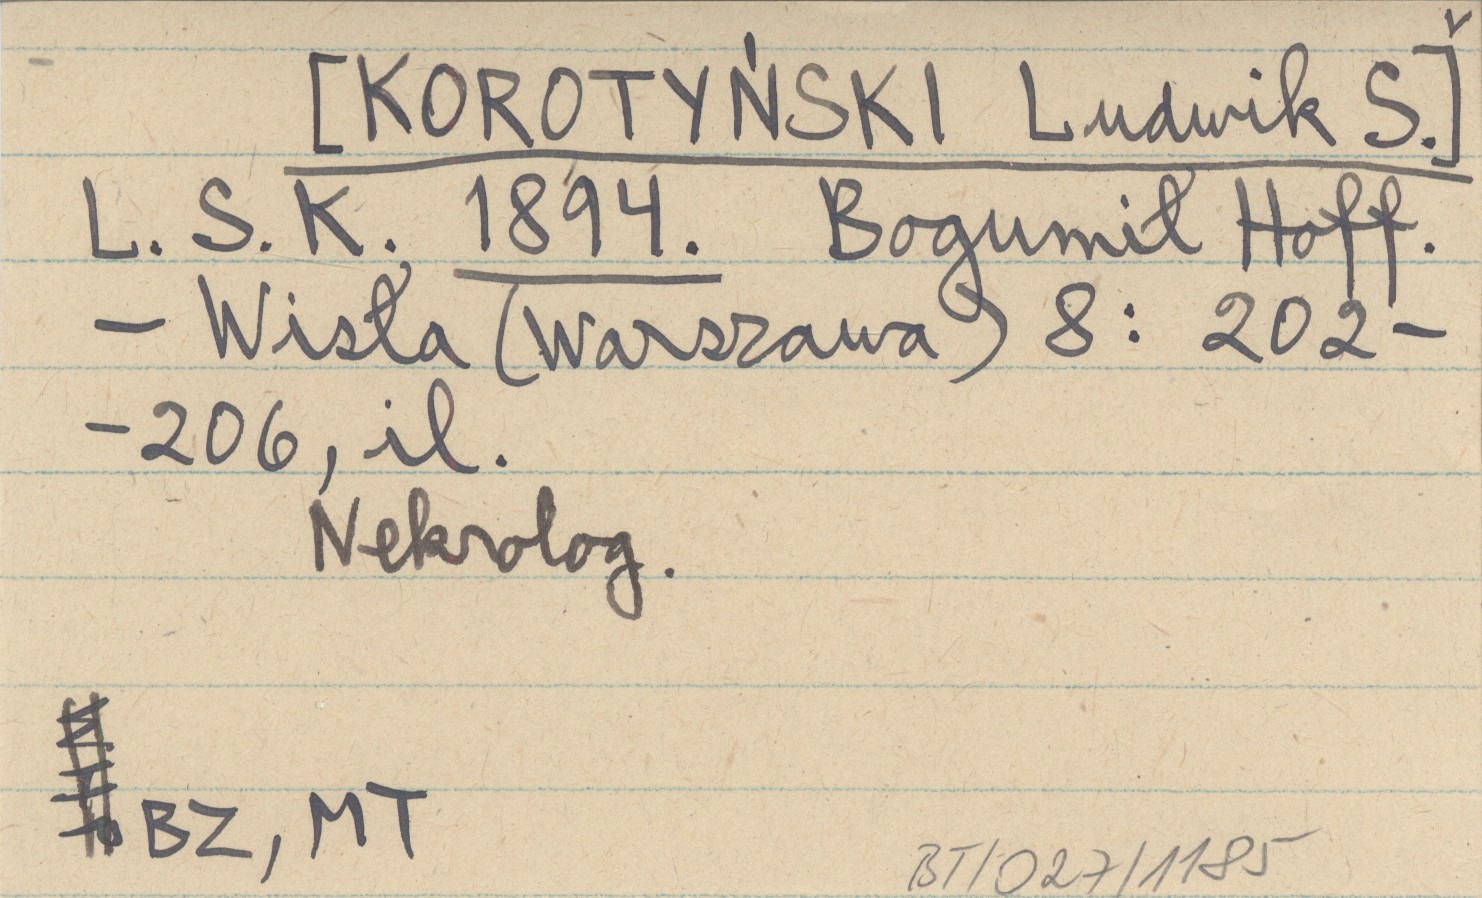 [KOROTYŃSKI Ludwik S.]
L. S. K. 1894. Bogumił Hoff.
– Wisła (Warszawa) 8: 202–
-206, il.
Nekrolog.
BZ, MT
BT/027/1185